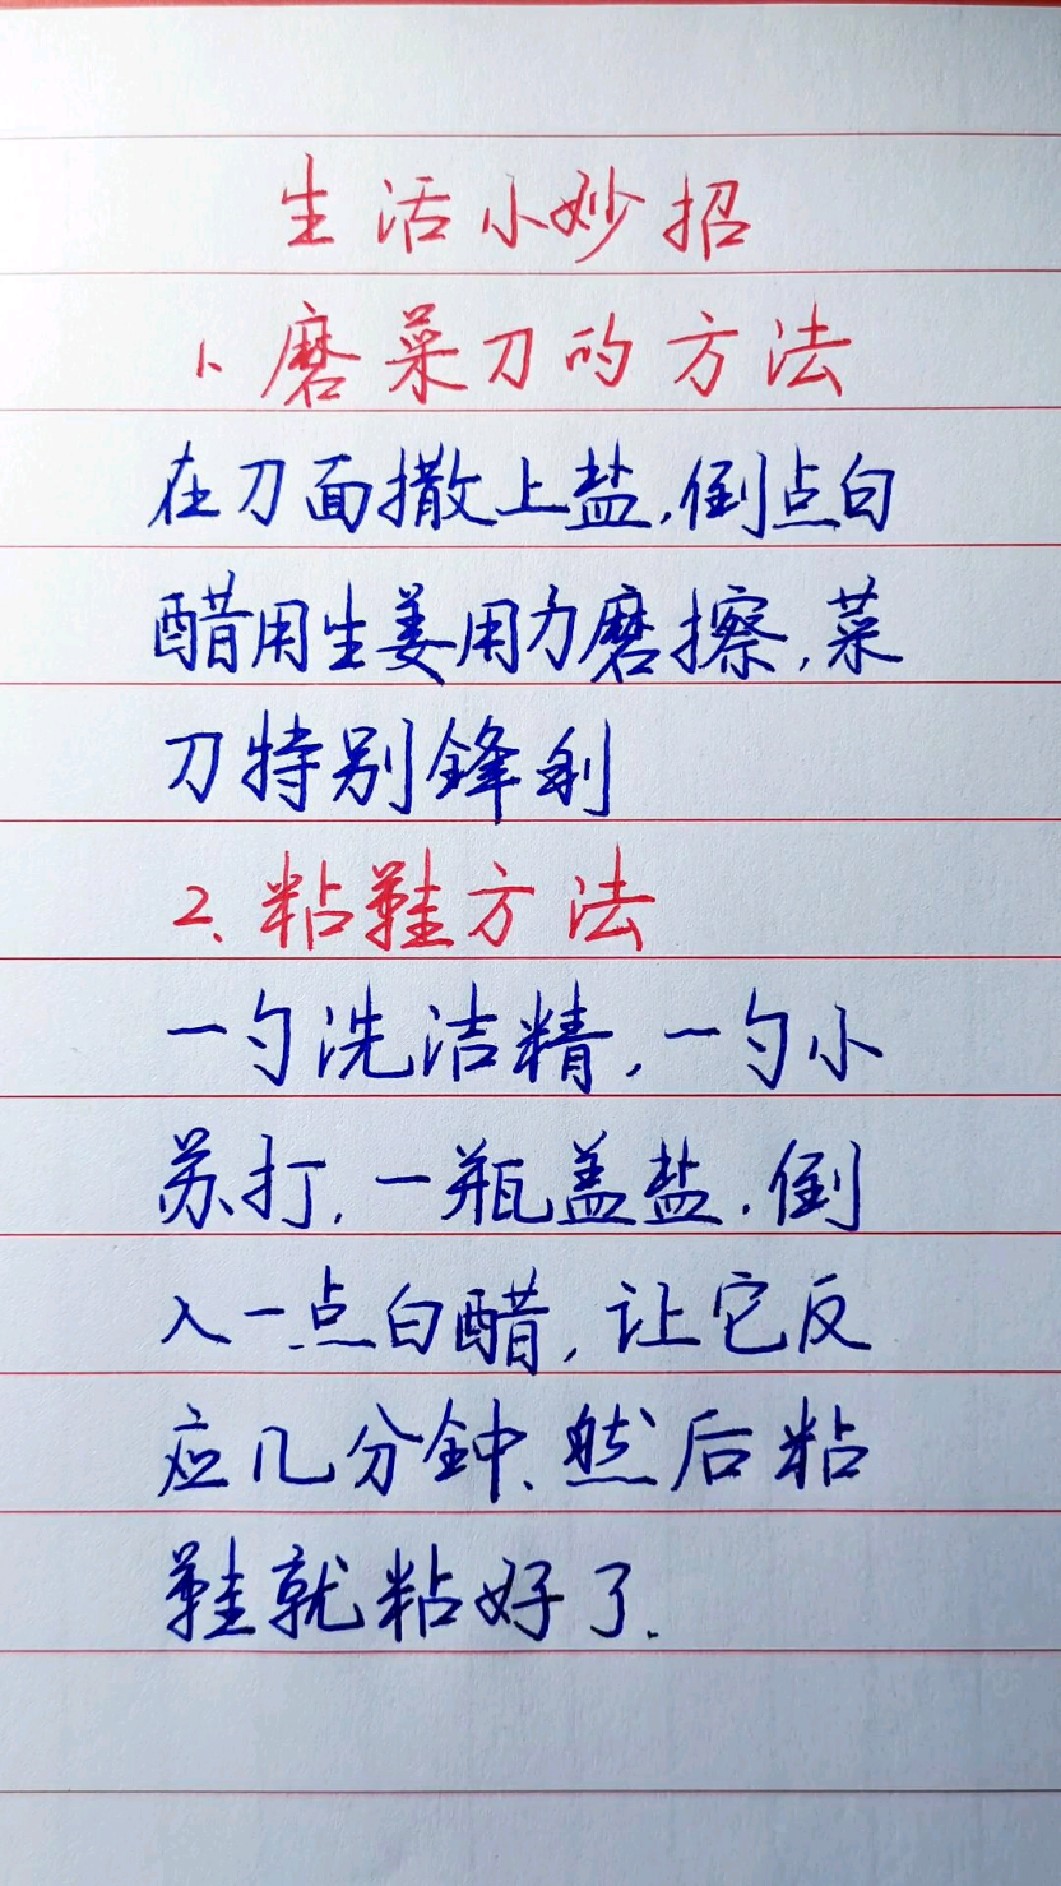 生活小妙招
1、磨菜刀的方法
在刀面撒上盐,倒点白
醋用生姜用力磨擦,菜
刀特别锋利
2、粘鞋方法
一勺洗洁精,一勺小
苏打,一瓶盖盐.倒
入一点白醋,让它反
应几分钟、然后粘
鞋就粘好了.